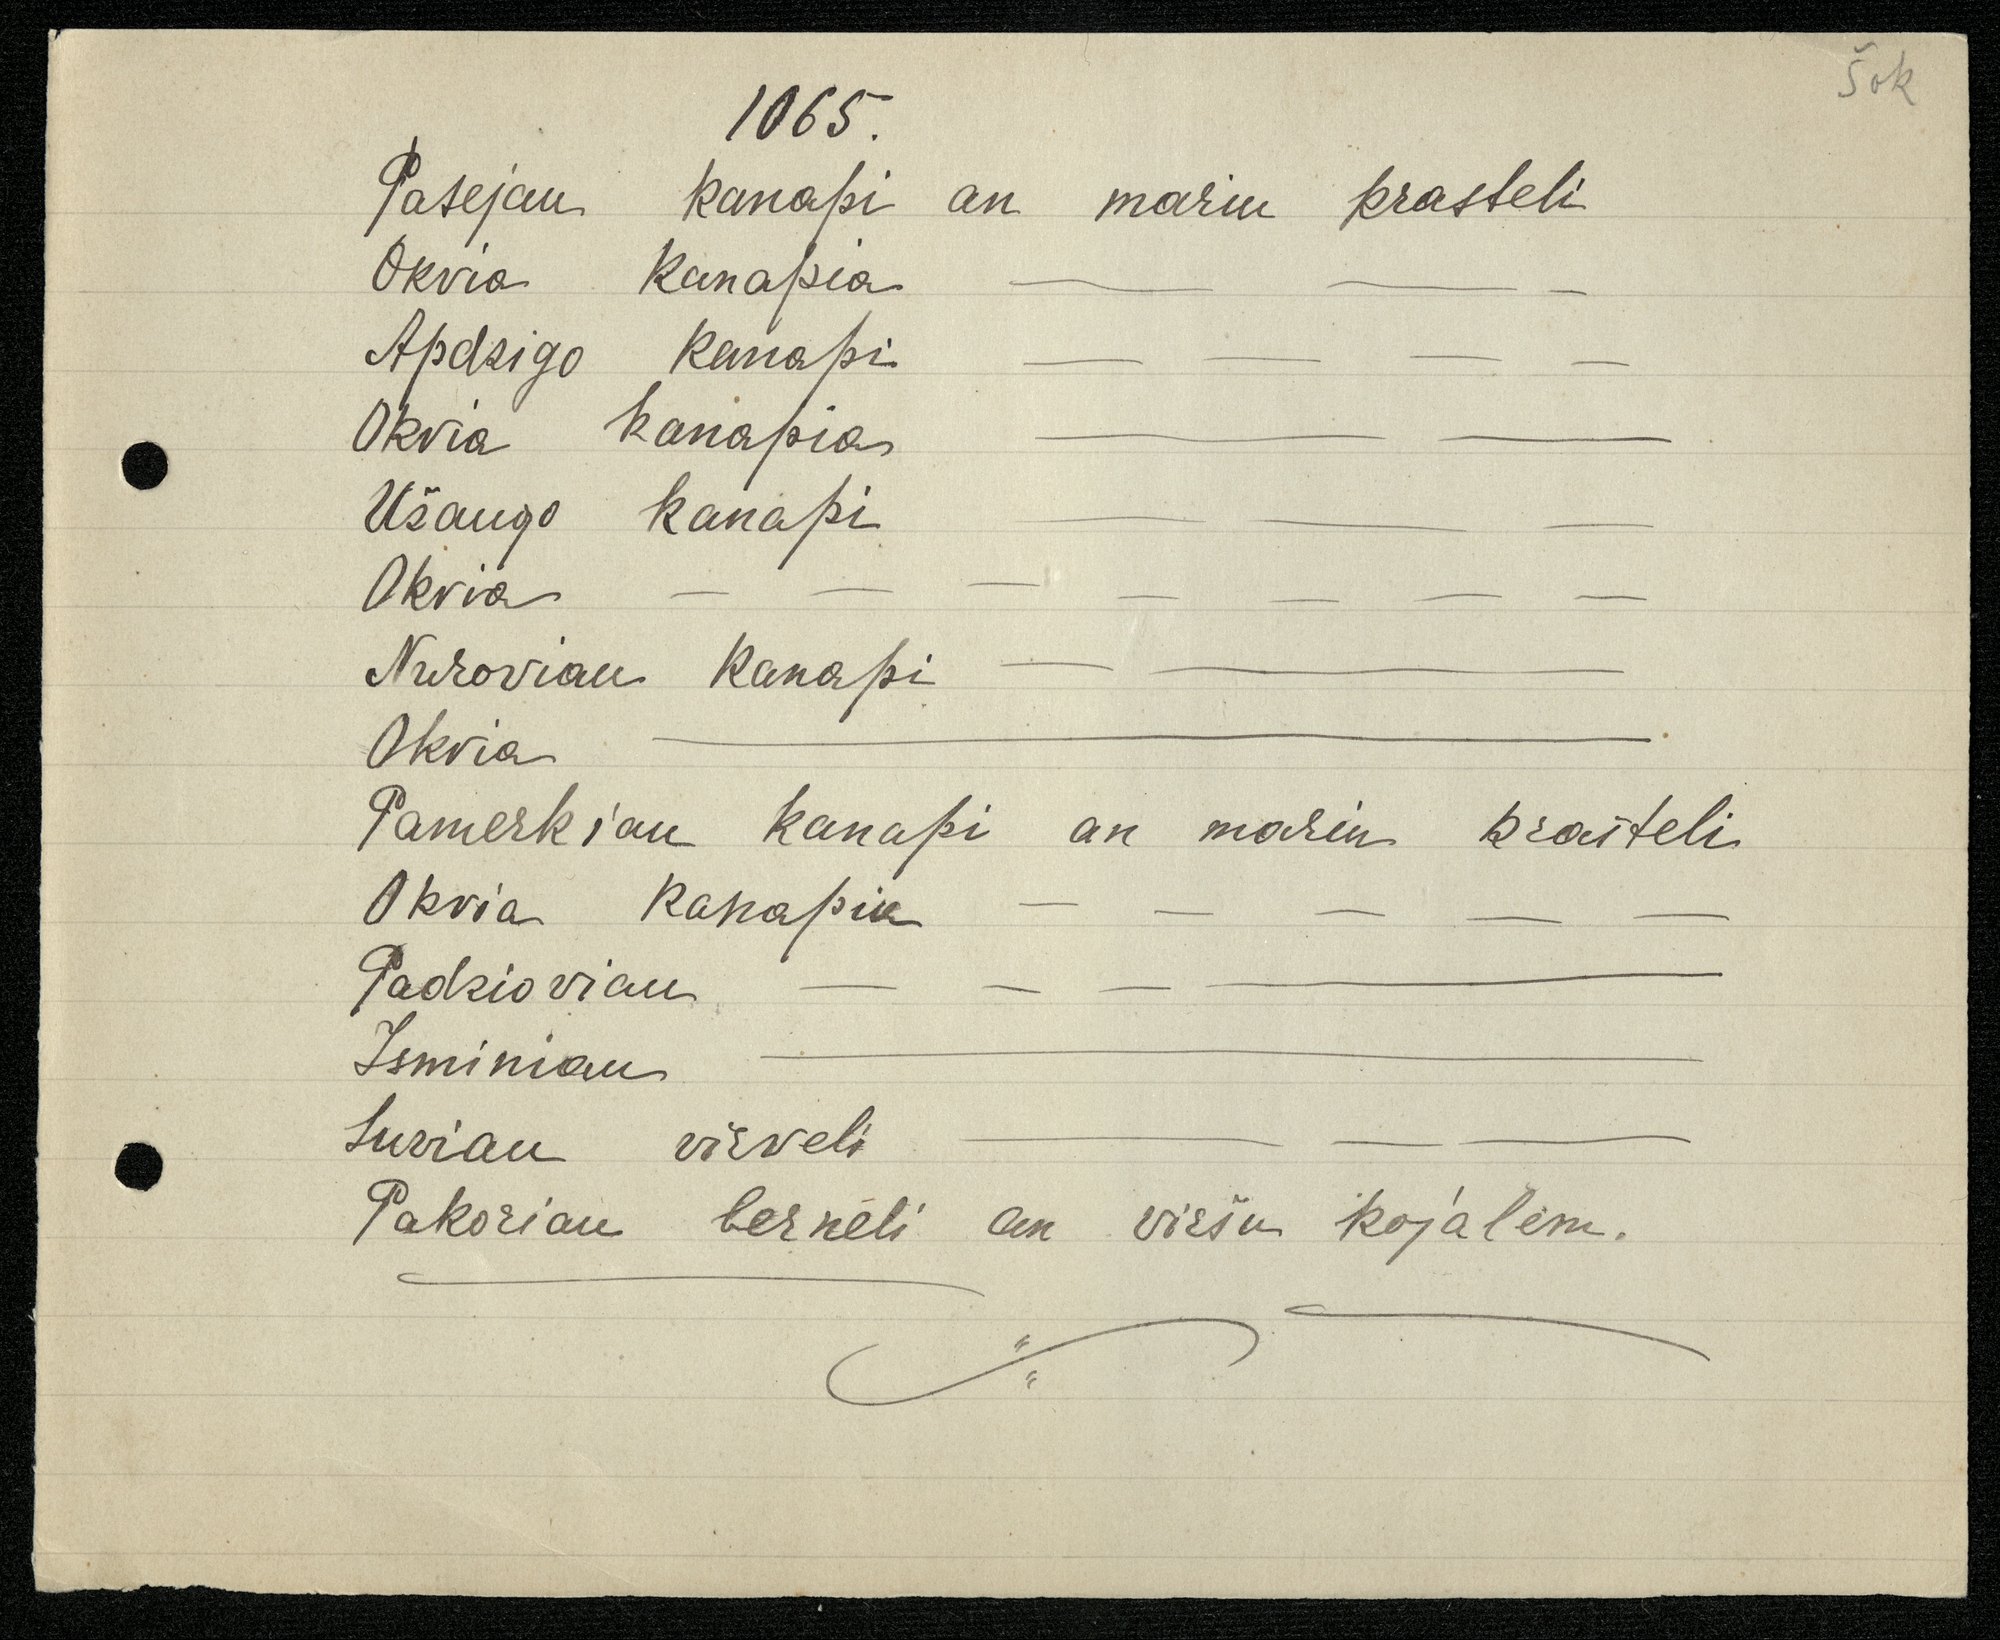 Šok
1065.
Pasejau kanapi an mariu krasteli
Okvia kanapia — — —
Apdzigo kanapi — — — —
Okvia kanapia — —
Užaugo kanapi — — —
Okvia — — — — — — —
Nuroviau kanapi — —
Okvia —
Pamerkiau kanapi an mariu krašteli
Okvia kanapia — — — — —
Padzioviau — — — —
Isminiau —
Suviau virveli — — —
Pakoriau berneli an viršu kojalem.